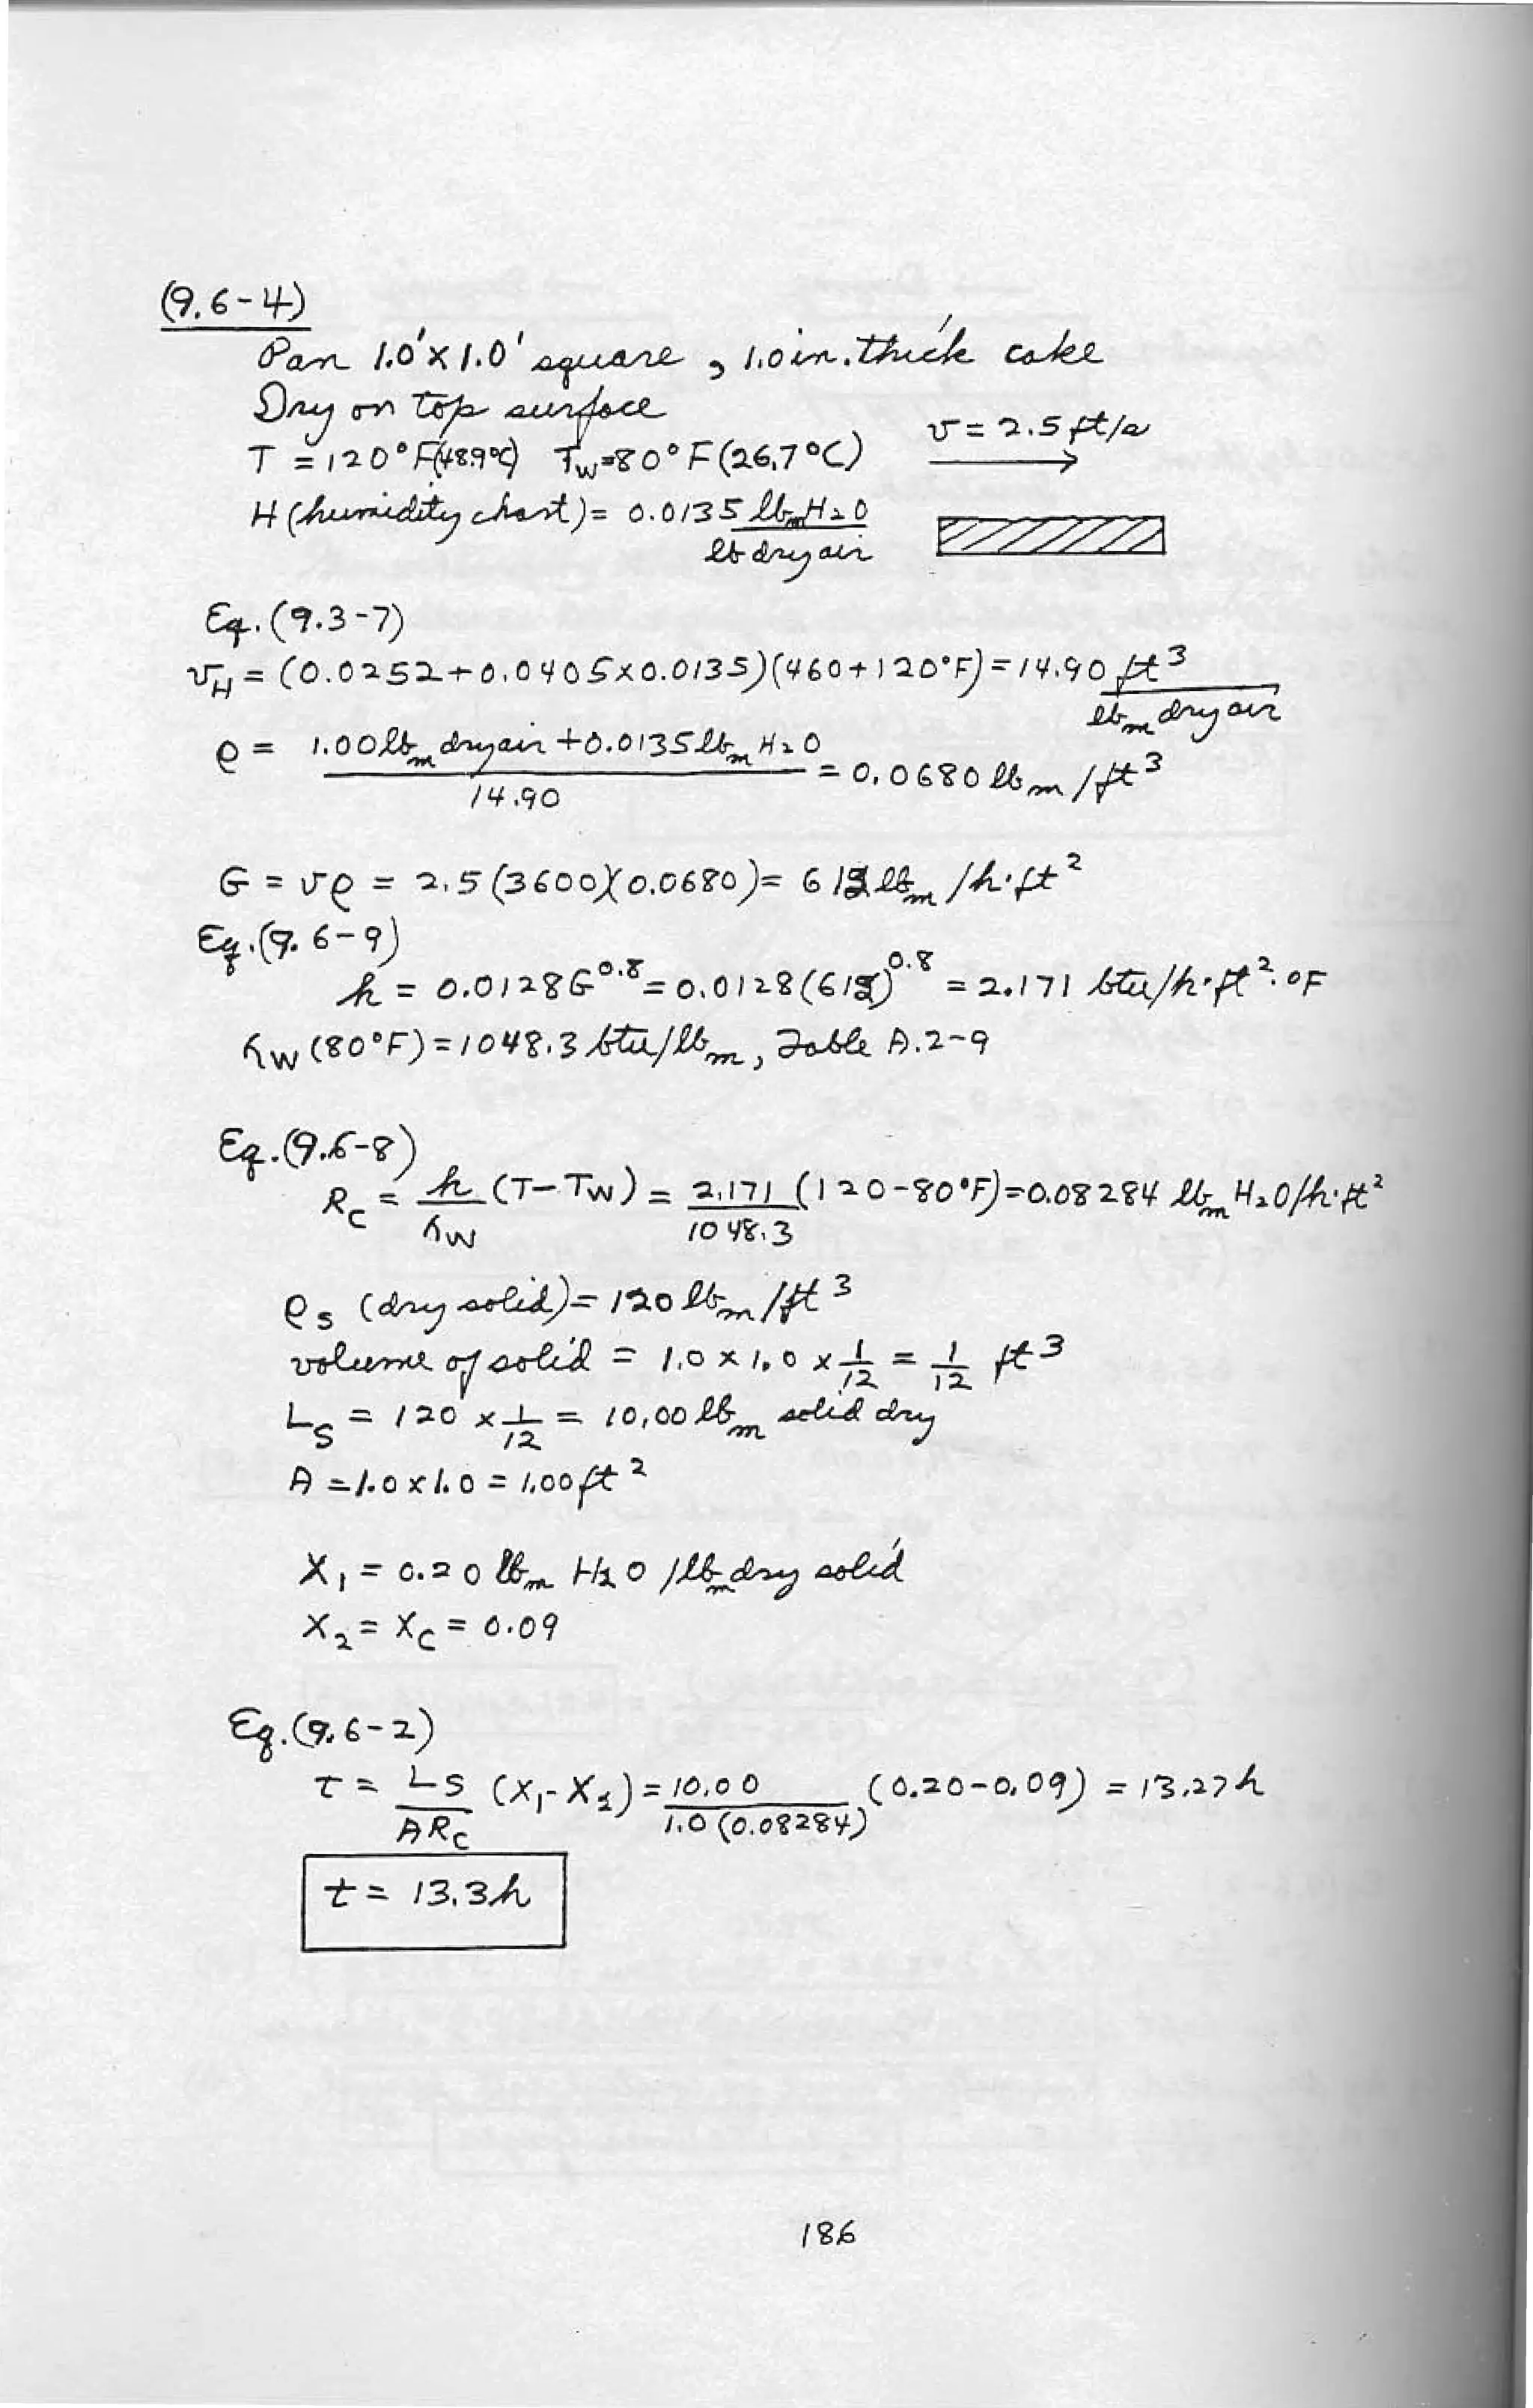 (9.6-4)
Pan 1.0' x 1.0' square, 1.0 in. thick cake
Dry on top surface
v = 2.5 ft/s
T = 120°F (48.9°C) Tw = 80°F (26.7°C)
H (humidity chart) = 0.0135 lbm H2O
lb dry air
Eq. (9.3-7)
vH = (0.0252 + 0.0405 x 0.0135)(460 + 120°F) = 14.90 ft3
lbm dry air
ρ = 1.00 lbm dry air + 0.0135 lbm H2O = 0.0680 lbm/ft3
14.90
G = vρ = 2.5 (3600)(0.0680) = lbm/h·ft2
Eq. (9.6-9)
h = 0.0128 G^0.8 = 0.0128 ( )^0.8 = 2.171 btu/h·ft2·°F
λw (80°F) = 1048.3 btu/lbm, Table A.2-9
Eq. (9.6-8)
Rc = h (T - Tw) = 2.171 (120 - 80°F) = 0.08284 lbm H2O/h·ft2
λw 1048.3
ρs (dry solid) = 120 lbm/ft3
volume of solid = 1.0 x 1.0 x 1/12 = 1/12 ft3
Ls = 120 x 1/12 = 10.00 lbm solid dry
A = 1.0 x 1.0 = 1.00 ft2
X1 = 0.20 lbm H2O/lbm dry solid
X2 = Xc = 0.09
Eq. (9.6-2)
t = Ls (X1 - X2) = 10.00 (0.20 - 0.09) = 13.27 h
ARc 1.0 (0.08284)
t = 13.3 h
186